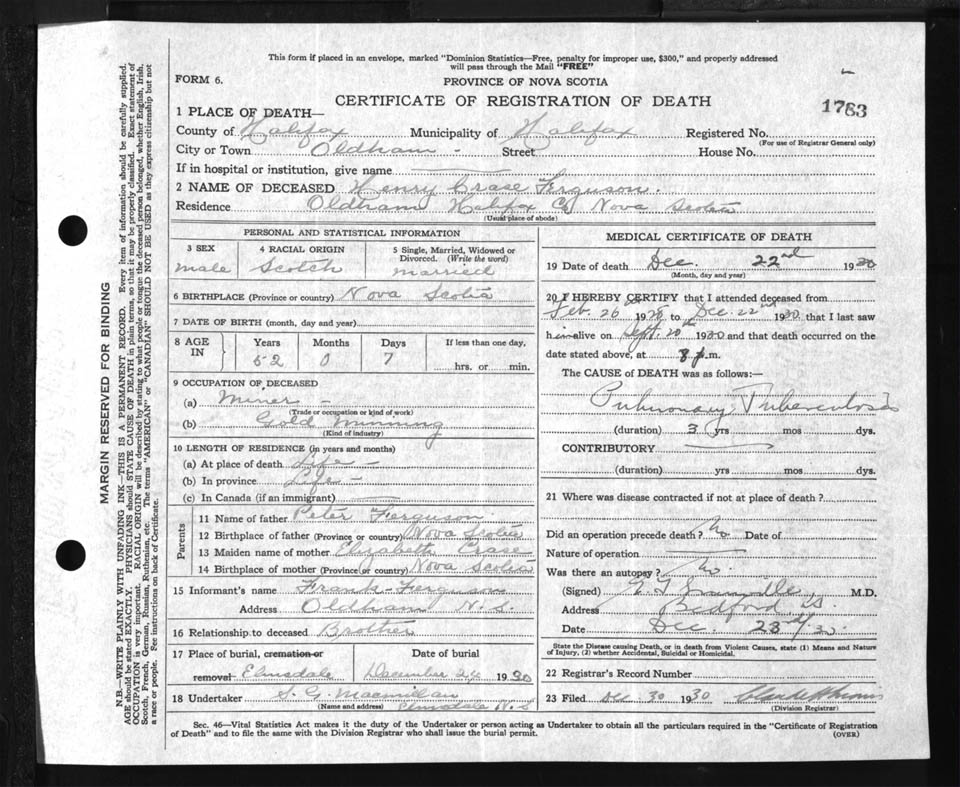 This form if placed in an envelope, marked "Dominion Statistics—Free, penalty for improper use, $300," and properly addressed
will pass through the Mail "FREE"
FORM 6.
PROVINCE OF NOVA SCOTIA
CERTIFICATE OF REGISTRATION OF DEATH
1763
1 PLACE OF DEATH—
County of Halifax Municipality of Halifax Registered No.
(For use of Registrar General only)
City or Town Oldham - Street House No.
If in hospital or institution, give name
2 NAME OF DECEASED Henry Crase Ferguson.
Residence Oldham Halifax Co Nova Scotia
(Usual place of abode)
PERSONAL AND STATISTICAL INFORMATION
3 SEX 4 RACIAL ORIGIN 5 Single, Married, Widowed or
Divorced. (Write the word)
male Scotch married
6 BIRTHPLACE (Province or country) Nova Scotia
7 DATE OF BIRTH (month, day and year)
8 AGE IN Years Months Days If less than one day,
52 0 7 hrs. or min.
9 OCCUPATION OF DECEASED
(a) Miner -
(Trade or occupation or kind of work)
(b) Gold Minning
(Kind of industry)
10 LENGTH OF RESIDENCE (in years and months)
(a) At place of death Life -
(b) In province Life -
(c) In Canada (if an immigrant)
Parents
11 Name of father Peter Ferguson
12 Birthplace of father (Province or country) Nova Scotia
13 Maiden name of mother Elizabeth Crase
14 Birthplace of mother (Province or country) Nova Scotia
15 Informant's name Frank Ferguson
Address Oldham N.S.
16 Relationship to deceased Brother
17 Place of burial, cremation or Date of burial
removal Elmsdale December 24 1930
18 Undertaker S. G. Macmillan
(Name and address) Elmsdale N.S
MEDICAL CERTIFICATE OF DEATH
19 Date of death Dec. 22nd 1930
(Month, day and year)
20 I HEREBY CERTIFY that I attended deceased from
Feb. 26th 1928 to Dec. 22nd 1930 that I last saw
him alive on Sept. 20th 1930 and that death occurred on the
date stated above, at 8 p.m.
The CAUSE of DEATH was as follows:—
Pulmonary Tuberculosis
(duration) 3 yrs mos dys.
CONTRIBUTORY
(duration) yrs mos dys.
21 Where was disease contracted if not at place of death?
Did an operation precede death? No Date of
Nature of operation
Was there an autopsy? No.
(Signed) M.D.
Address Bedford NS.
Date Dec. 23rd/30.
State the Disease causing Death, or in death from Violent Causes, state (1) Means and Nature
of Injury, (2) whether Accidental, Suicidal or Homicidal.
22 Registrar's Record Number
23 Filed Dec. 30 1930
(Division Registrar)
Sec. 46—Vital Statistics Act makes it the duty of the Undertaker or person acting as Undertaker to obtain all the particulars required in the "Certificate of Registration
of Death" and to file the same with the Division Registrar who shall issue the burial permit. (OVER)
MARGIN RESERVED FOR BINDING
N.B.—WRITE PLAINLY WITH UNFADING INK—THIS IS A PERMANENT RECORD. Every item of information should be carefully supplied.
AGE should be stated EXACTLY. PHYSICIANS should STATE CAUSE OF DEATH in plain terms, so that it may be properly classified. Exact statement of
OCCUPATION is very important. RACIAL ORIGIN will be described by stating to what people or tongue the deceased person belonged, whether English, Irish,
Scotch, French, German, Russian, Ruthenian, etc. The terms "AMERICAN" or "CANADIAN" SHOULD NOT BE USED as they express citizenship but not
a race or people. See instructions on back of Certificate.